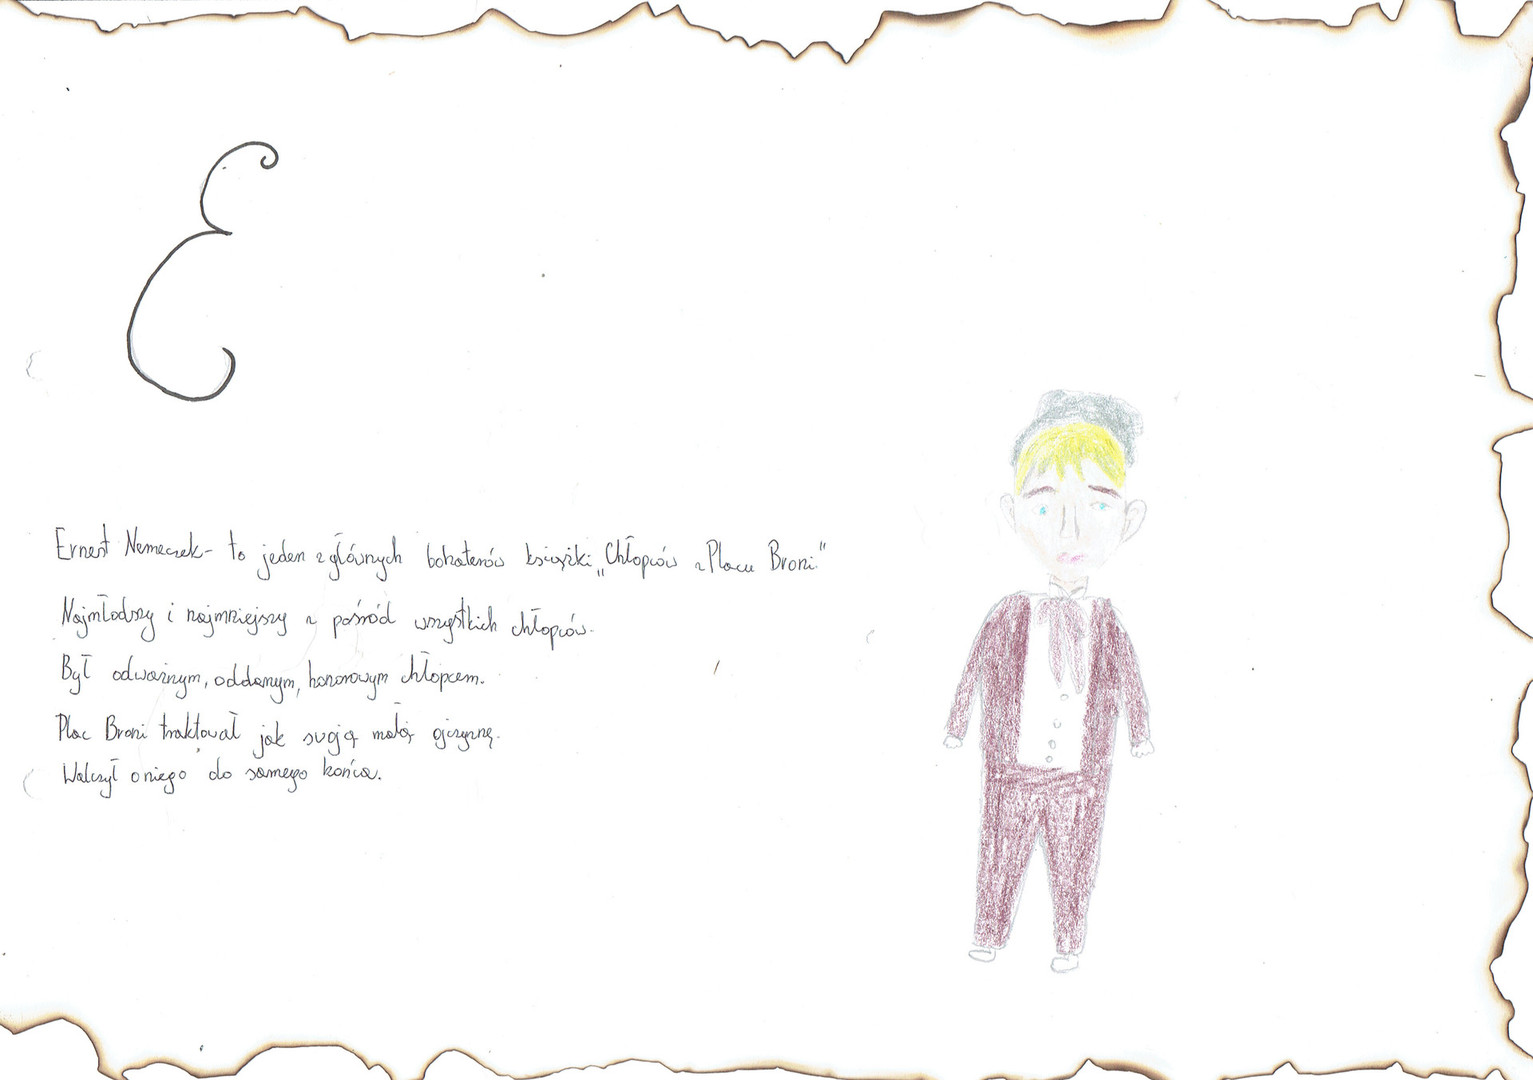 E
Ernest Nemeczek - to jeden z głównych bohaterów książki „Chłopców z Placu Broni"
Najmłodszy i najmniejszy z pośród wszystkich chłopców.
Był odważnym, oddanym, honorowym chłopcem.
Plac Broni traktował jak swoją małą ojczyznę.
Walczył o niego do samego końca.